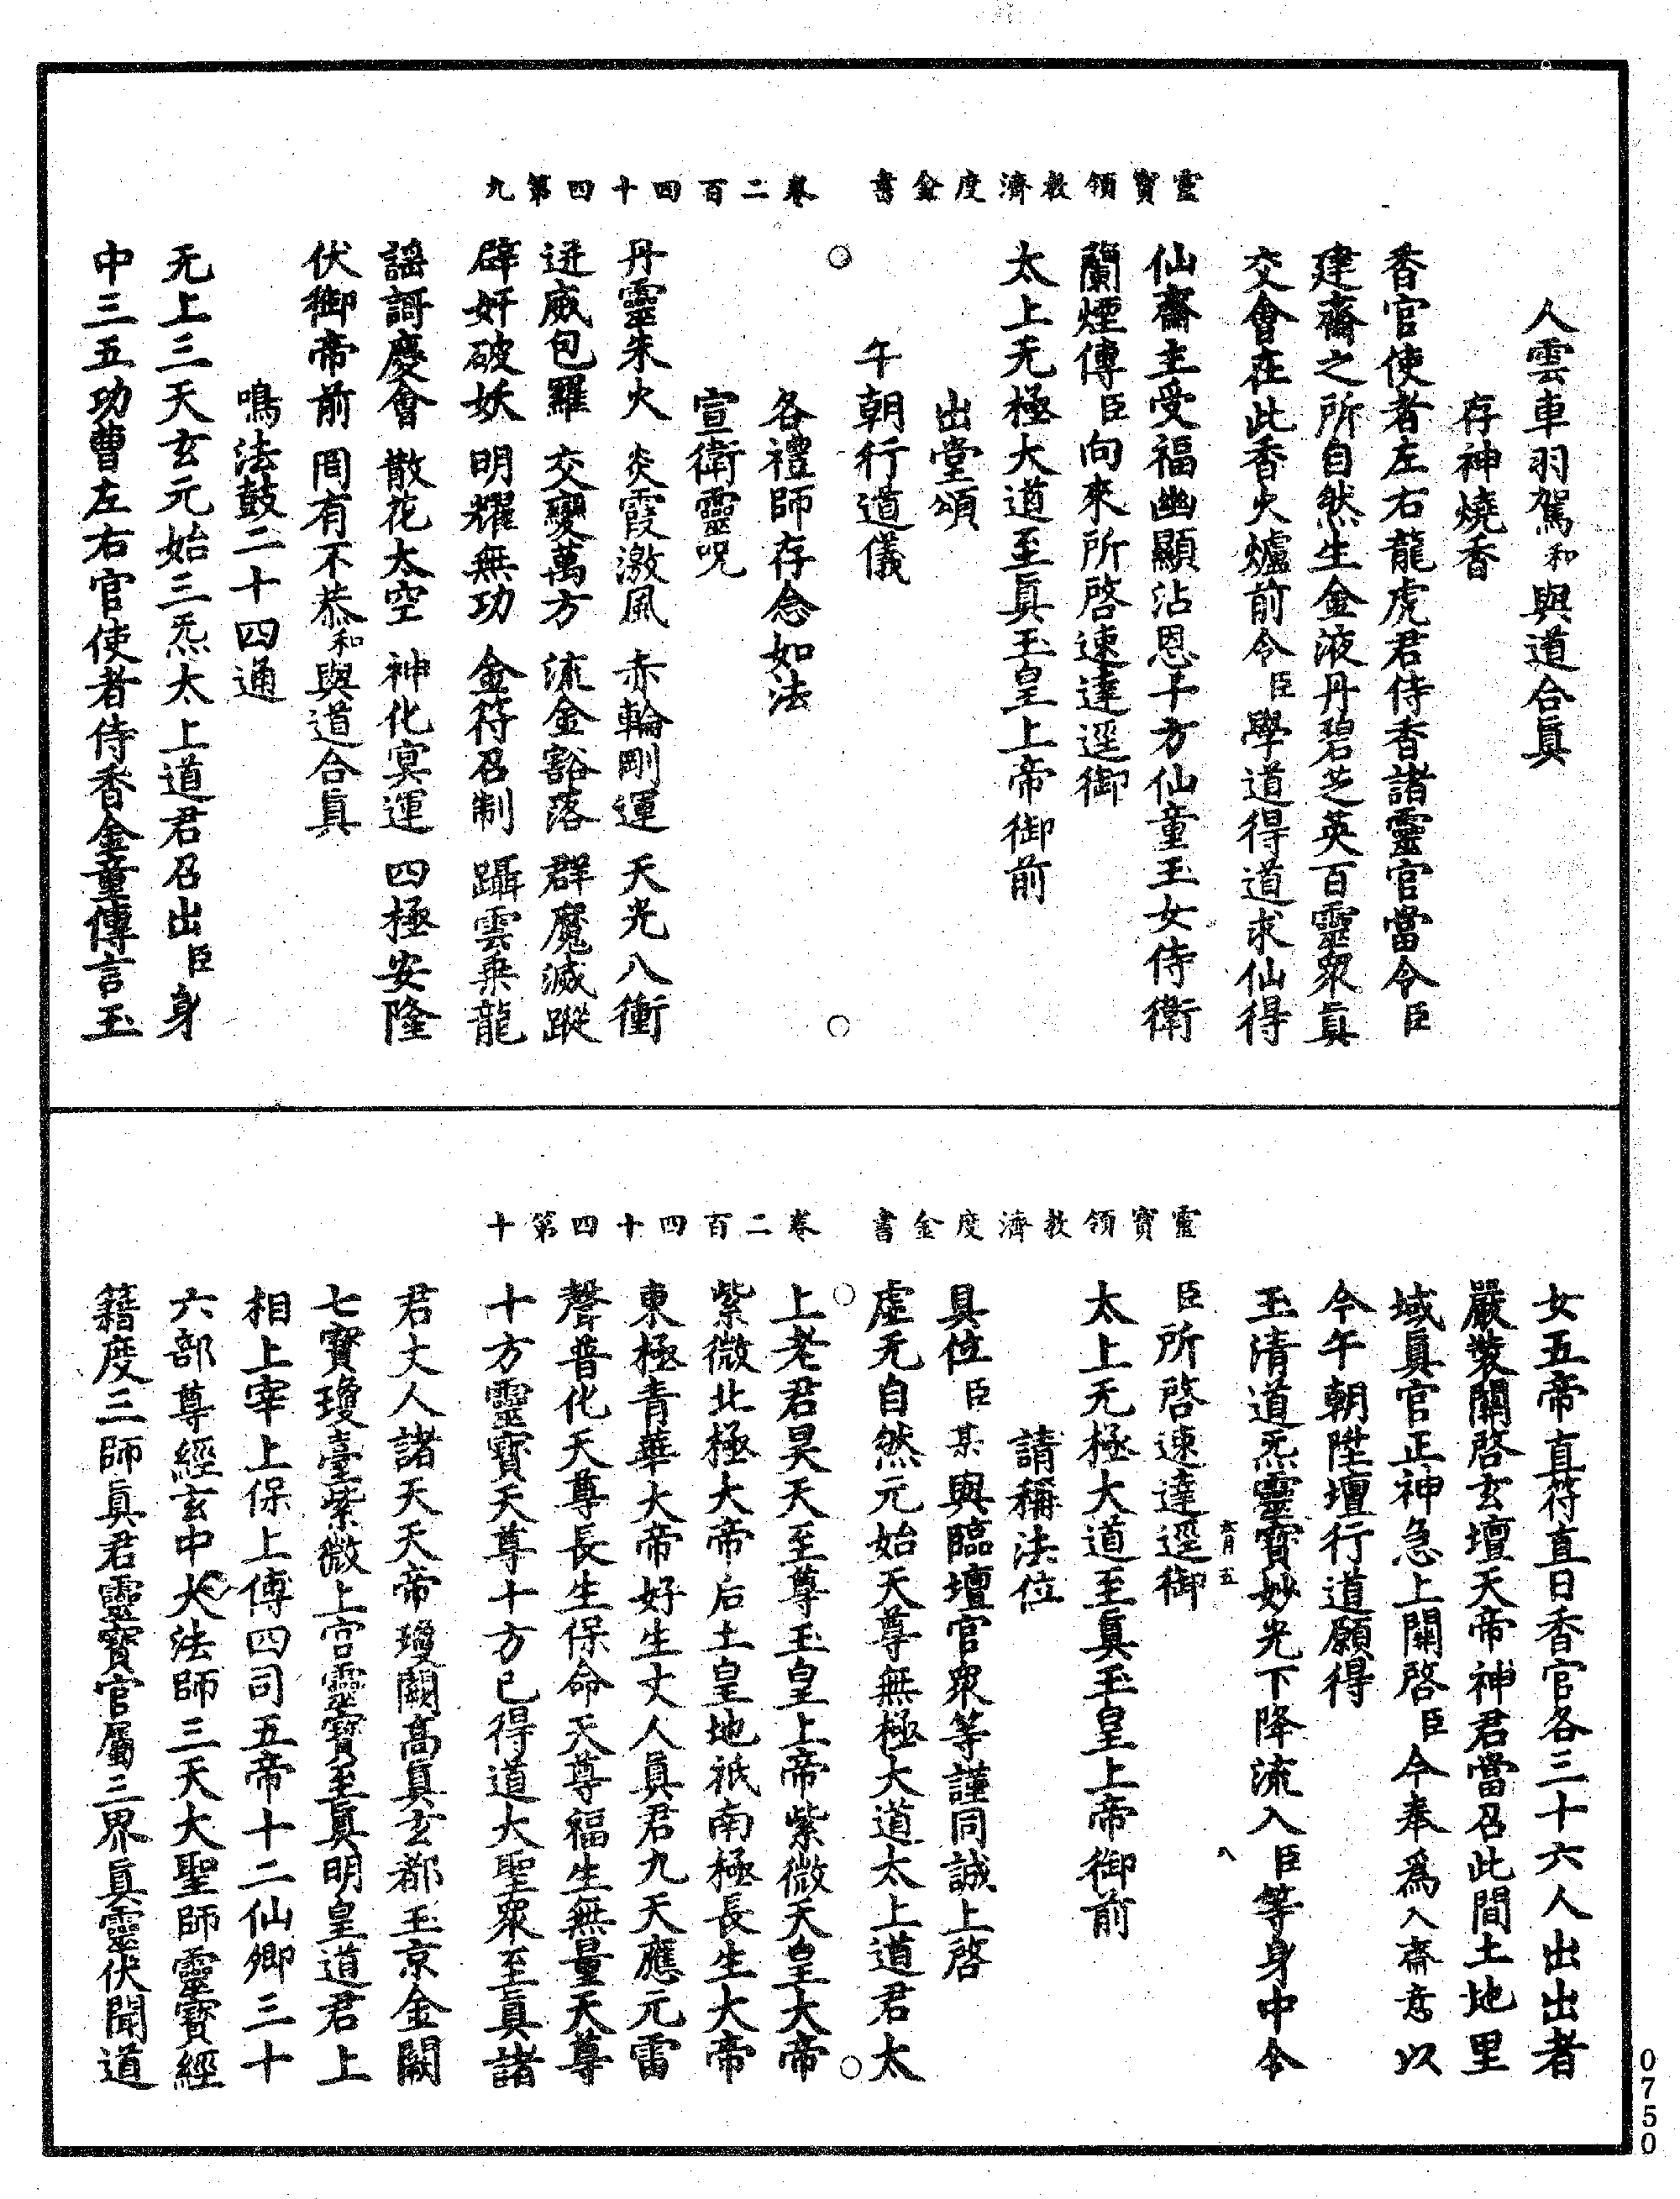 靈寶領教濟度金書　卷二百四十四第九
人雲車羽駕和與道合眞
存神燒香
香官使者左右龍虎君侍香諸靈官當令臣
建齋之所自然生金液丹碧芝英百靈眾眞
交會在此香火爐前令臣學道得道求仙得
仙齋主受福幽顯沾恩十方仙童玉女侍衛
蘭煙傳臣向來所啓速達逕御
太上无極大道至眞玉皇上帝御前
出堂頌
午朝行道儀
各禮師存念如法
宣衛靈呪
丹靈朱火　炎霞激風　赤輪剛運　天光八衝
迸威包羅　交變萬方　流金豁落　群魔滅蹤
辟奸破妖　明耀無功　金符召制　躡雲乗龍
謡謌慶會　散花太空　神化冥運　四極安隆
伏御帝前　罔有不恭和與道合眞
鳴法鼓二十四通
无上三天玄元始三炁太上道君召出臣身
中三五功曹左右官使者侍香金童傳言玉
靈寶領教濟度金書　卷二百四十四第十
女五帝直符直日香官各三十六人出出者
嚴裝關啓玄壇天帝神君當召此間土地里
域眞官正神急上關啓臣今奉爲入齋意以
今午朝陞壇行道願得
玉清道炁靈寶妙光下降流入臣等身中令
六月五　八
臣所啓速達逕御
太上无極大道至眞玉皇上帝御前
請稱法位
具位臣某與臨壇官眾等謹同誠上啓
虛无自然元始天尊無極大道太上道君太
上老君昊天至尊玉皇上帝紫微天皇大帝
紫微北極大帝后土皇地祇南極長生大帝
東極青華大帝好生丈人眞君九天應元雷
聲普化天尊長生保命天尊福生無量天尊
十方靈寶天尊十方已得道大聖眾至眞諸
君丈人諸天天帝瓊闕高眞玄都玉京金闕
七寶瓊臺紫微上宮靈寶至眞明皇道君上
相上宰上保上傅四司五帝十二仙卿三十
六部尊經玄中大法師三天大聖師靈寶經
籍度三師眞君靈寶官屬三界眞靈伏聞道
0750